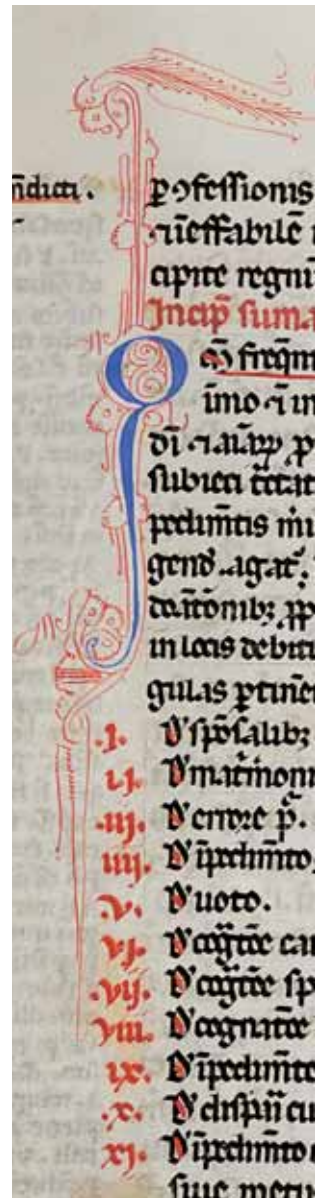 n̄dicti .
ꝓfessionis
⁊ ineffabilē
cipite regni
Incip̄ sum
Qm̄ freqm̄
imo ⁊ in
dī ⁊
subieci t̄ctat
pedim̄tis mi
gend̄ agat᷑.
in locis debiti
gulas ꝑtinē
.I. D᷑ spōsalibꝫ
.II. D᷑ mat̄rimoni
.iij. D᷑ errore p̄.
.iiij. D᷑ īpedim̄to.
.V. D᷑ uoto.
.VI. D᷑ coḡtōe car
.vij. D᷑ coḡtōe sp
.VIII. D᷑ cognatōe
.ix. D᷑ īpedim̄to
.x. D᷑ dispāi cu
.xj. D᷑ īpedim̄to
siue metu